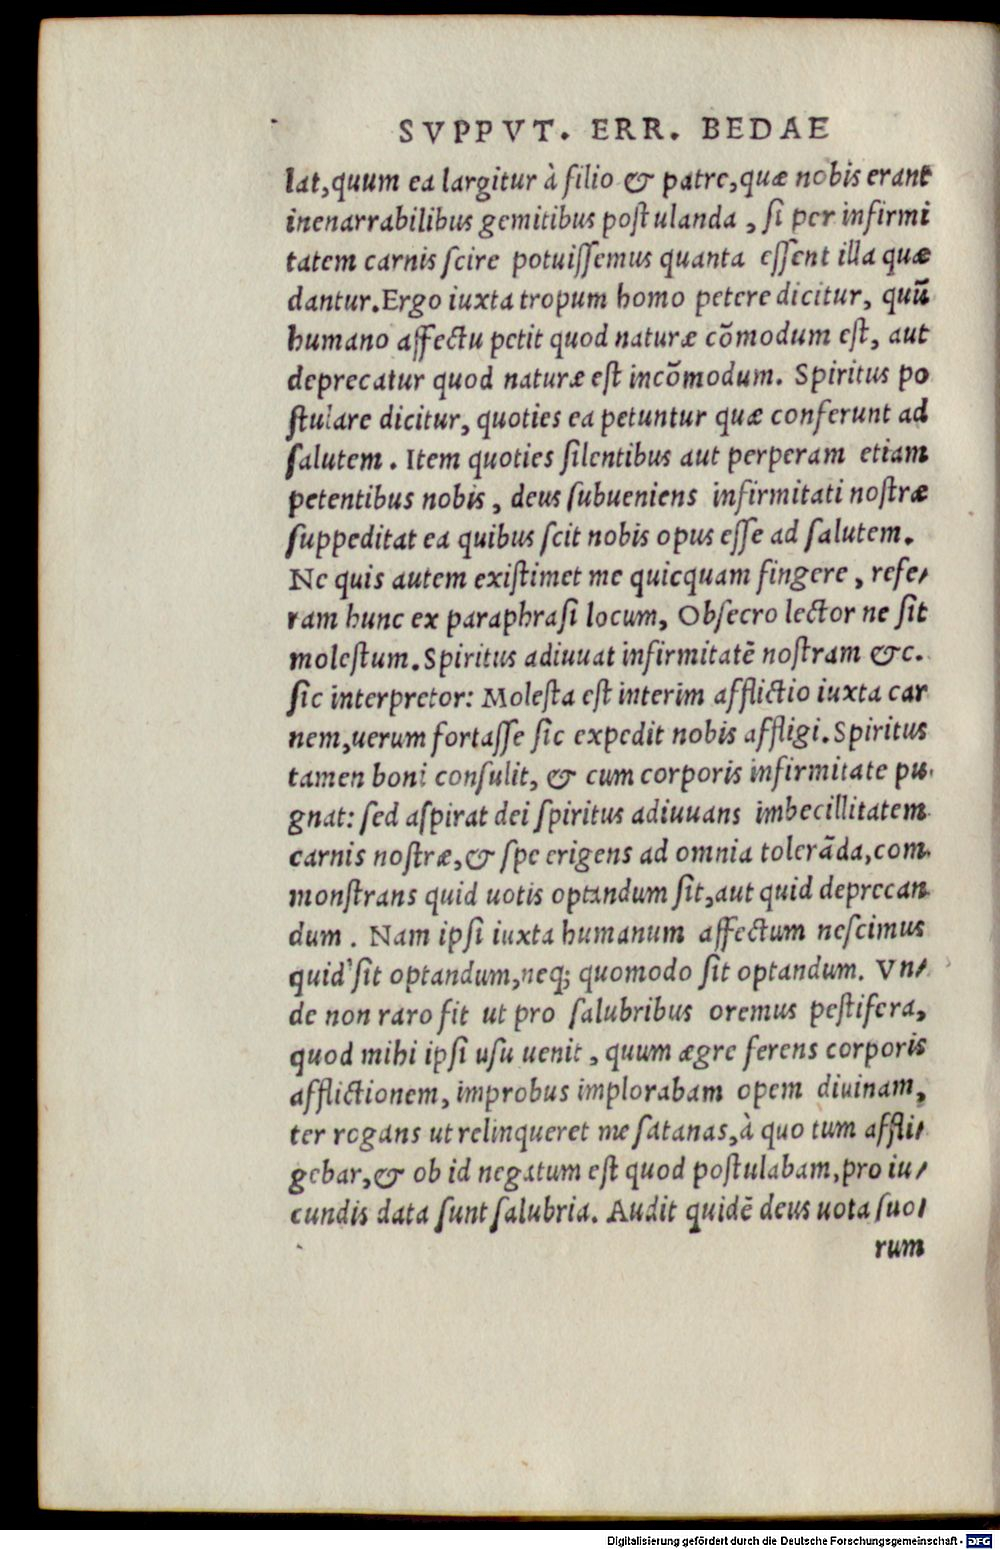 SVPPVT. ERR. BEDAE
lat,quum ea largitur à filio & patre,quæ nobis erant
inenarrabilibus gemitibus postulanda , si per infirmi
tatem carnis scire potuissemus quanta essent illa quæ
dantur.Ergo iuxta tropum homo petere dicitur, quũ
humano affectu petit quod naturæ cõmodum est, aut
deprecatur quod naturæ est incõmodum. Spiritus po
stulare dicitur, quoties ea petuntur quæ conferunt ad
salutem . Item quoties silentibus aut perperam etiam
petentibus nobis , deus subueniens infirmitati nostræ
suppeditat ea quibus scit nobis opus esse ad salutem.
Ne quis autem existimet me quicquam fingere , refe/
ram hunc ex paraphrasi locum, Obsecro lector ne sit
molestum.Spiritus adiuuat infirmitatẽ nostram &c.
sic interpretor: Molesta est interim afflictio iuxta car
nem,uerum fortasse sic expedit nobis affligi.Spiritus
tamen boni consulit, & cum corporis infirmitate pu.
gnat: sed aspirat dei spiritus adiuuans imbecillitatem
carnis nostræ,& spe erigens ad omnia tolerãda,com.
monstrans quid uotis optandum sit,aut quid deprecan
dum . Nam ipsi iuxta humanum affectum nescimus
quid sit optandum,neq; quomodo sit optandum. Vn/
de non raro fit ut pro salubribus oremus pestifera,
quod mihi ipsi usu uenit , quum ægre ferens corporis
afflictionem, improbus implorabam opem diuinam,
ter rogans ut relinqueret me satanas,à quo tum affli/
gebar,& ob id negatum est quod postulabam,pro iu/
cundis data sunt salubria. Audit quidẽ deus uota suo/
rum
Digitalisierung gefördert durch die Deutsche Forschungsgemeinschaft - DFG